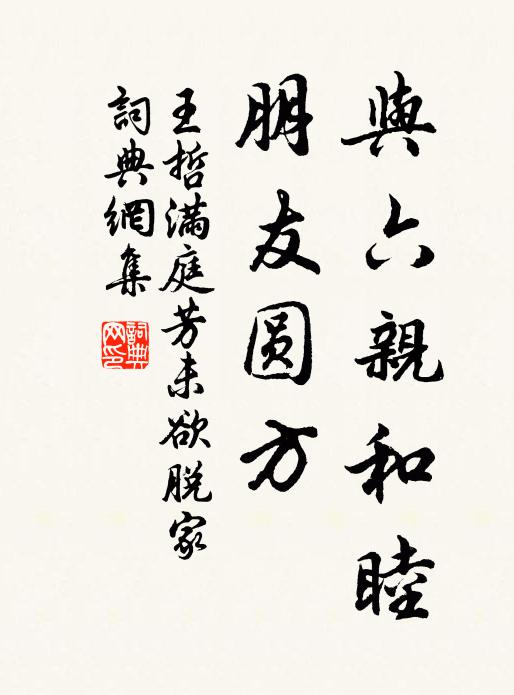 與六親和睦
朋友圓方
王哲滿庭芳未欲脱家
詞典網集
詞典網印